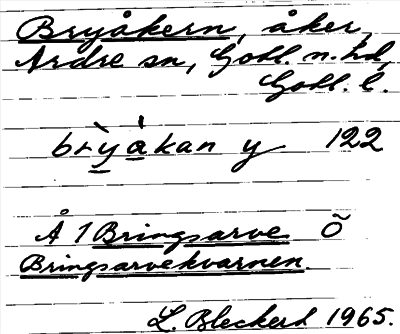 Bryåkern, åker,
Ardre sn, Gotl. n. hd,
Gotl. l.
brỳa̍kan y 122
Å 1 Bringsarve Õ
Bringsarvekvarnen.
L. Bleckert 1965.